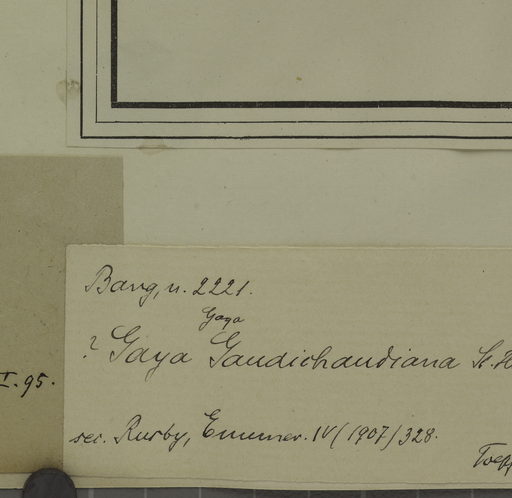 Bang, n. 2221.
Gaya
? Gaya Gaudichaudiana St. H
I. 95.
sec. Rusby, Enumer. IV (1907) 328.
Toepf